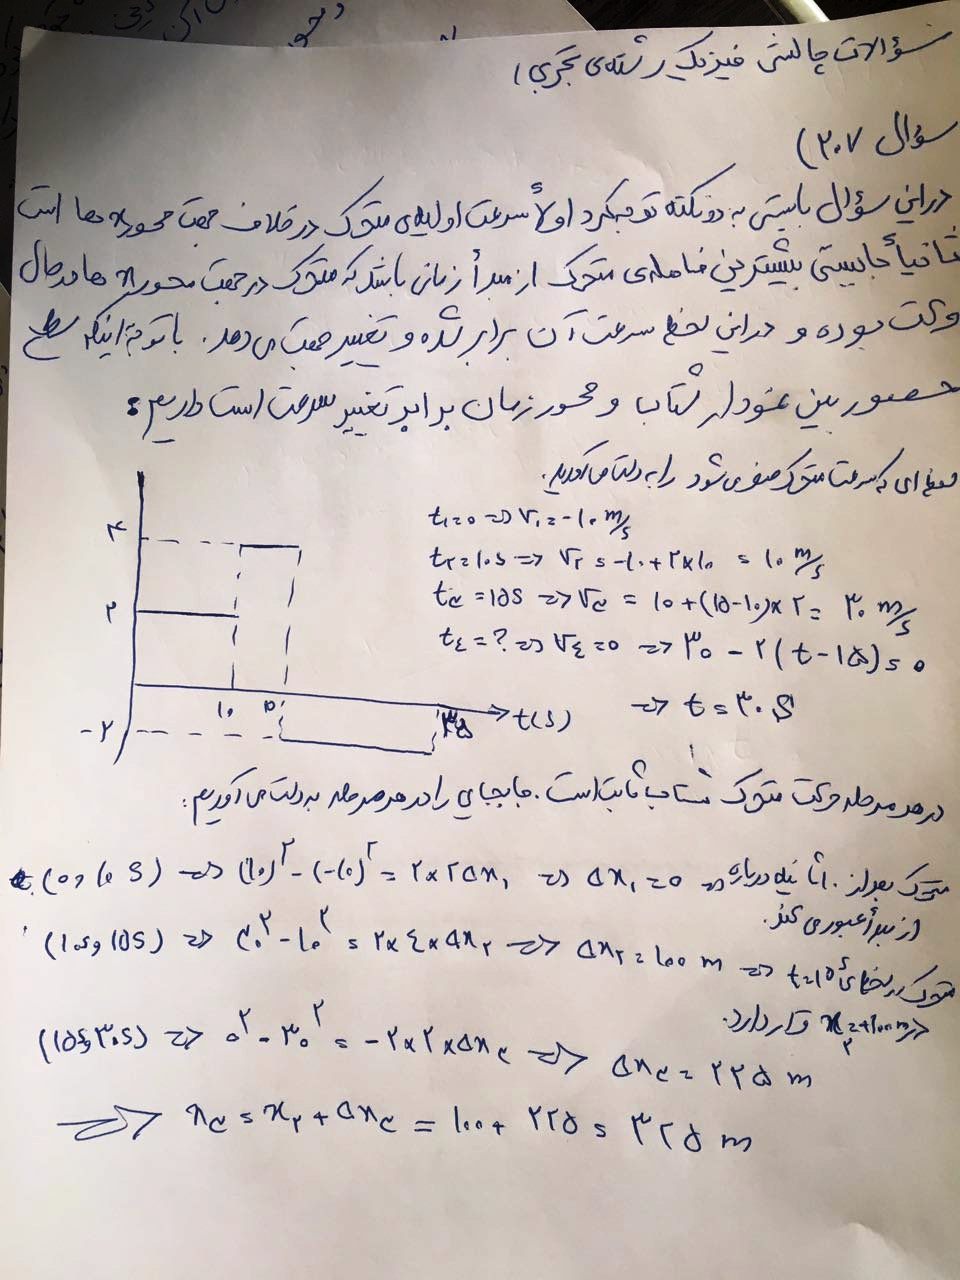 سؤالات چالشی فیزیک رشته‌ی تجربی ؛
سؤال ۲۰۷)
در این سؤال بایستی به دو نکته توجه کرد اولاً سرعت اولیه‌ی متحرک در خلاف جهت محور xها است
ثانیاً جابیستی بیشترین فاصله‌ی متحرک از مبدأ زمانی باشد که متحرک در جهت محور x ها در حال
حرکت بوده و در این لحظه سرعت آن برابر شده و تغییر جهت می دهد. با توجه اینکه سطح
محصور بین نمودار شتاب و محور زمان برابر تغییر سرعت است داریم:
لحظه ای که سرعت متحرک صفر می شود را به دست می آوریم.
t۱=۰ ⇒ V۱=-۱۰ m/s
t۲=۱۰s ⇒ V۲ = -۱۰+۲×۱۰ = ۱۰ m/s
t۳=۱۵s ⇒ V۳ = ۱۰+(۱۵-۱۰)×۲= ۳۰ m/s
t٤=? ⇒ V٤=۰ ⇒ ۳۰ - ۲(t-۱۵)=۰
⇒ t=۳۰s
۴
۲
-۲
۱۰
۱۵
۳۵
t(s)
در هر مرحله حرکت متحرک شتاب ثابت است. جابجایی را در هر مرحله به دست می آوریم:
(۰ و ۱۰s) ⇒ (۱۰)^۲ - (-۱۰)^۲ = ۲×۲Δx۱ ⇒ Δx۱=۰ ⇒ متحرک بعد از ۱۰ ثانیه دوباره
از مبدأ عبور می کند.
(۱۰s و ۱۵s) ⇒ ۳۰^۲ - ۱۰^۲ = ۲×٤×Δx۲ ⇒ Δx۲=۱۰۰ m ⇒ متحرک در لحظه‌ی t=۱۵s
در x۲=+۱۰۰m قرار دارد.
(۱۵s و ۳۰s) ⇒ ۰^۲ - ۳۰^۲ = -۲×۲×Δx۳ ⇒ Δx۳ = ۲۲۵ m
⇒ x۳ = x۲ + Δx۳ = ۱۰۰+ ۲۲۵ = ۳۲۵ m